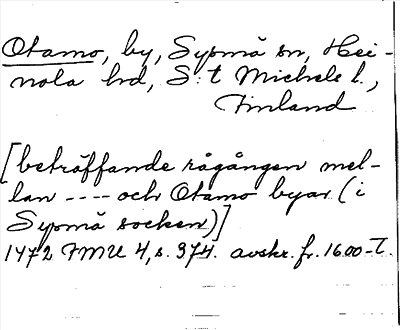 Otamo, by, Sysmä sn, Hei-
nola hd, S:t Michels l.,
Finland
[beträffande rågången mel-
lan ---- och Otamo byar (i
Sysmä socken)]
1472 FMU 4, s. 374. avskr. fr. 1600-t.